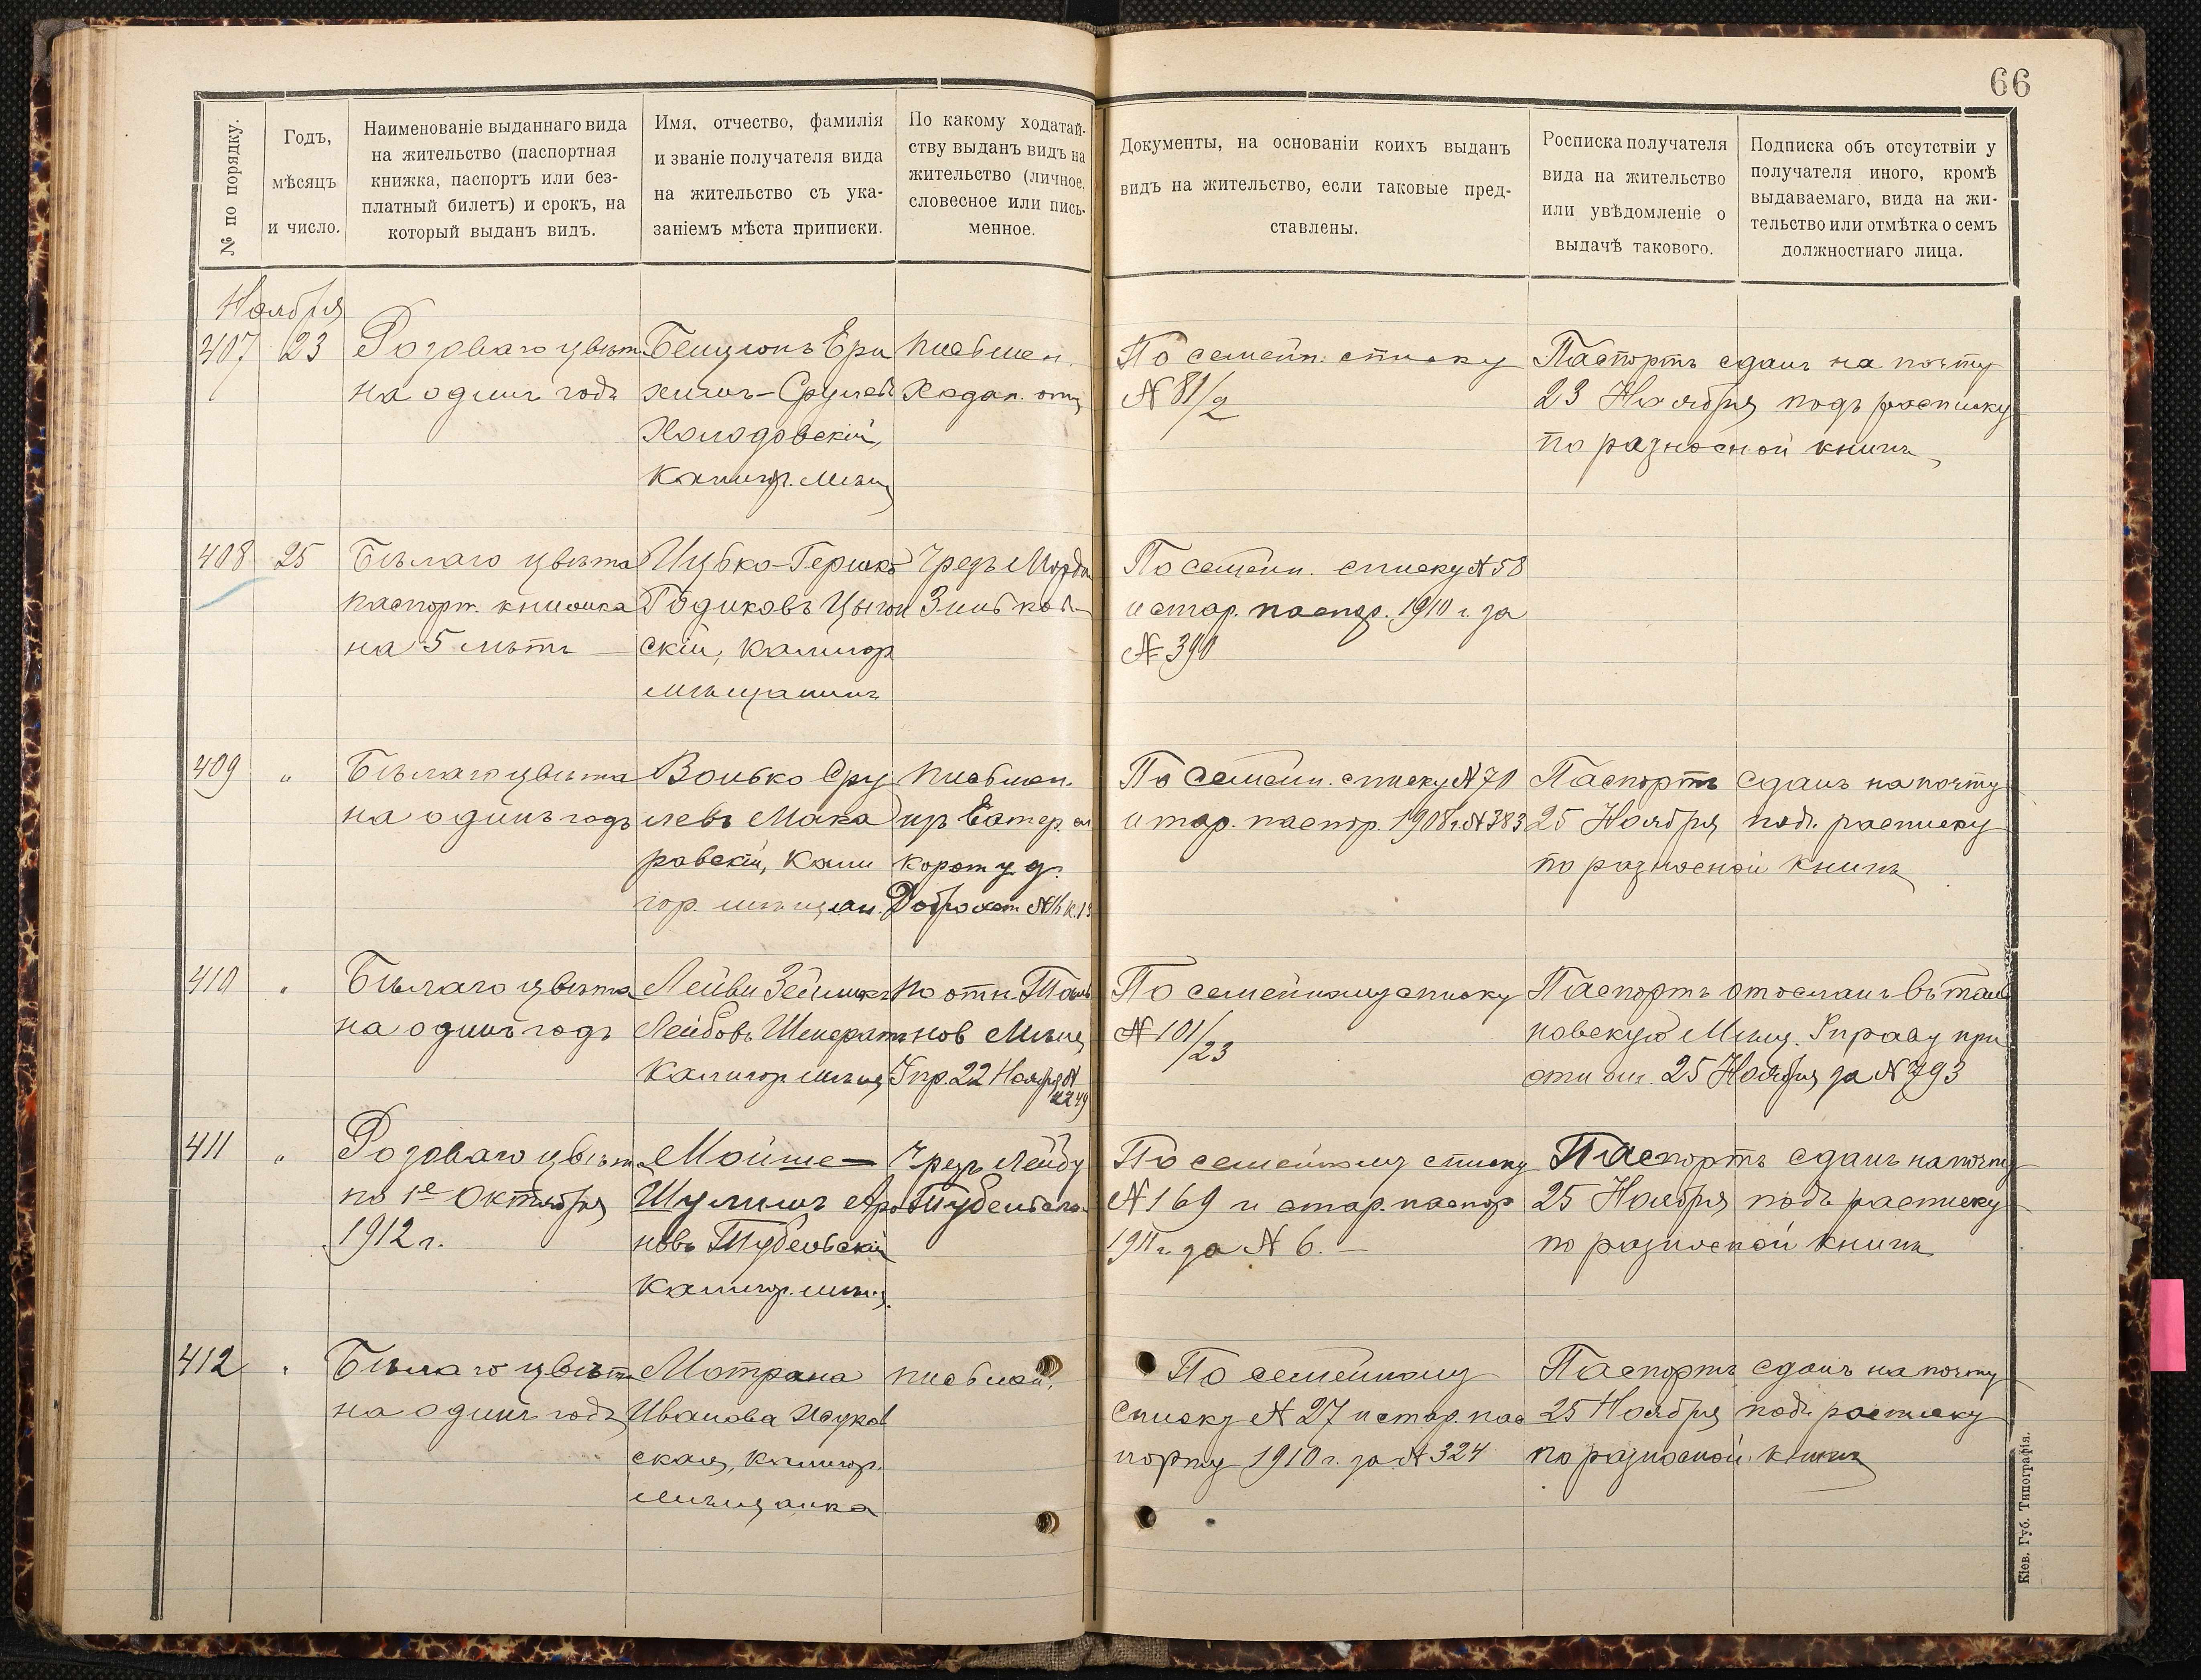 66
№ по порядку.
Годъ,
мѣсяцъ
и число.
Наименованіе выданнаго вида
на жительство (паспортная
книжка, паспортъ или без-
платный билетъ) и срокъ, на
который выданъ видъ.
Имя, отчество, фамилія
и званіе получателя вида
на жительство съ ука-
заніемъ мѣста приписки.
По какому ходатай-
ству выданъ видъ на
жительство (личное,
словесное или пись-
менное.
Документы, на основаніи коихъ выданъ
видъ на жительство, если таковые пред-
ставлены.
Росписка получателя
вида на жительство
или увѣдомленіе о
выдачѣ такового.
Подписка объ отсутствіи у
получателя иного, кромѣ
выдаваемаго, вида на жи-
тельство или отмѣтка о семъ
должностнаго лица.
Ноября
407
23
Розоваго цвѣта
на одинъ годъ
Бенціонъ Ери
химъ-Срулевъ
Холодовскій,
Калигор. мѣщ
письмен.
Ходат. отц
По семейн. списку
№ 81/2
Паспортъ сданъ на почту
23 Ноября подъ расписку
по разносной книгѣ
408
25
Бѣлаго цвѣта
паспорт. книжка
на 5 лѣтъ
Ицко-Гершко
Годиковъ
скій, Калигор
мѣщанинъ
Чрезъ Мордк
По семейн. списку № 58
и стар. паспор. 1910 г. за
№ 390
409
"
Бѣлаго цвѣта
на одинъ годъ
Волько Сру
левъ Мака
ровскій, Кали
гор. мѣщан.
письмен.
По семейн. списку № 70
и стар. паспор. 1908 г. № 383
Паспортъ сданъ на почту
25 Ноября подъ расписку
по разносной книгѣ
410
"
Бѣлаго цвѣта
на одинъ годъ
Лейви Зейликъ
Лейбовъ
Калигор мѣщ
по отн. Таль
нов Мѣщ
Упр. 22 Ноября №
2249
По семейному списку
№ 101/23
Паспортъ отосланъ въ Таль
новскую Мѣщ. Управу при
отнош. 25 Ноября за № 793
411
"
Розоваго цвѣта
по 1е Октября
1912 г.
Мойше-
Шулимъ Аро
новъ Тубельскій
Калигор. мѣщ.
Чрезъ Лейбу
Тубельскаго
По семейному списку
№ 169 и стар. паспор
1911 г. за № 6.
Паспортъ сданъ на почту
25 Ноября подъ расписку
по разносной книгѣ
412
"
Бѣлаго цвѣта
на одинъ годъ
Мотрана
Иванова
ская, Калигор.
мѣщанка
письмен.
По семейному
списку № 27 и стар. пас
порту 1910 г. за № 324
Паспортъ сданъ на почту
25 Ноября подъ расписку
по разносной книгѣ
Кіев. Губ. Типографія.